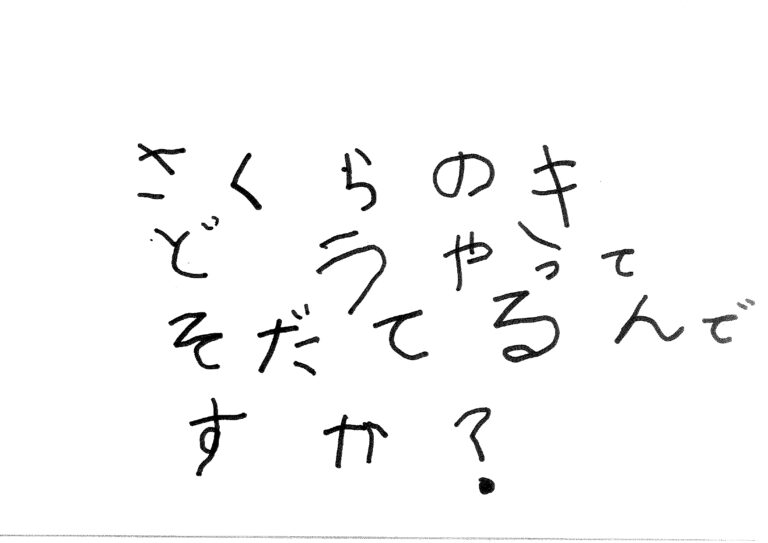 さくらのキ
どうやって
そだてるんで
すか？